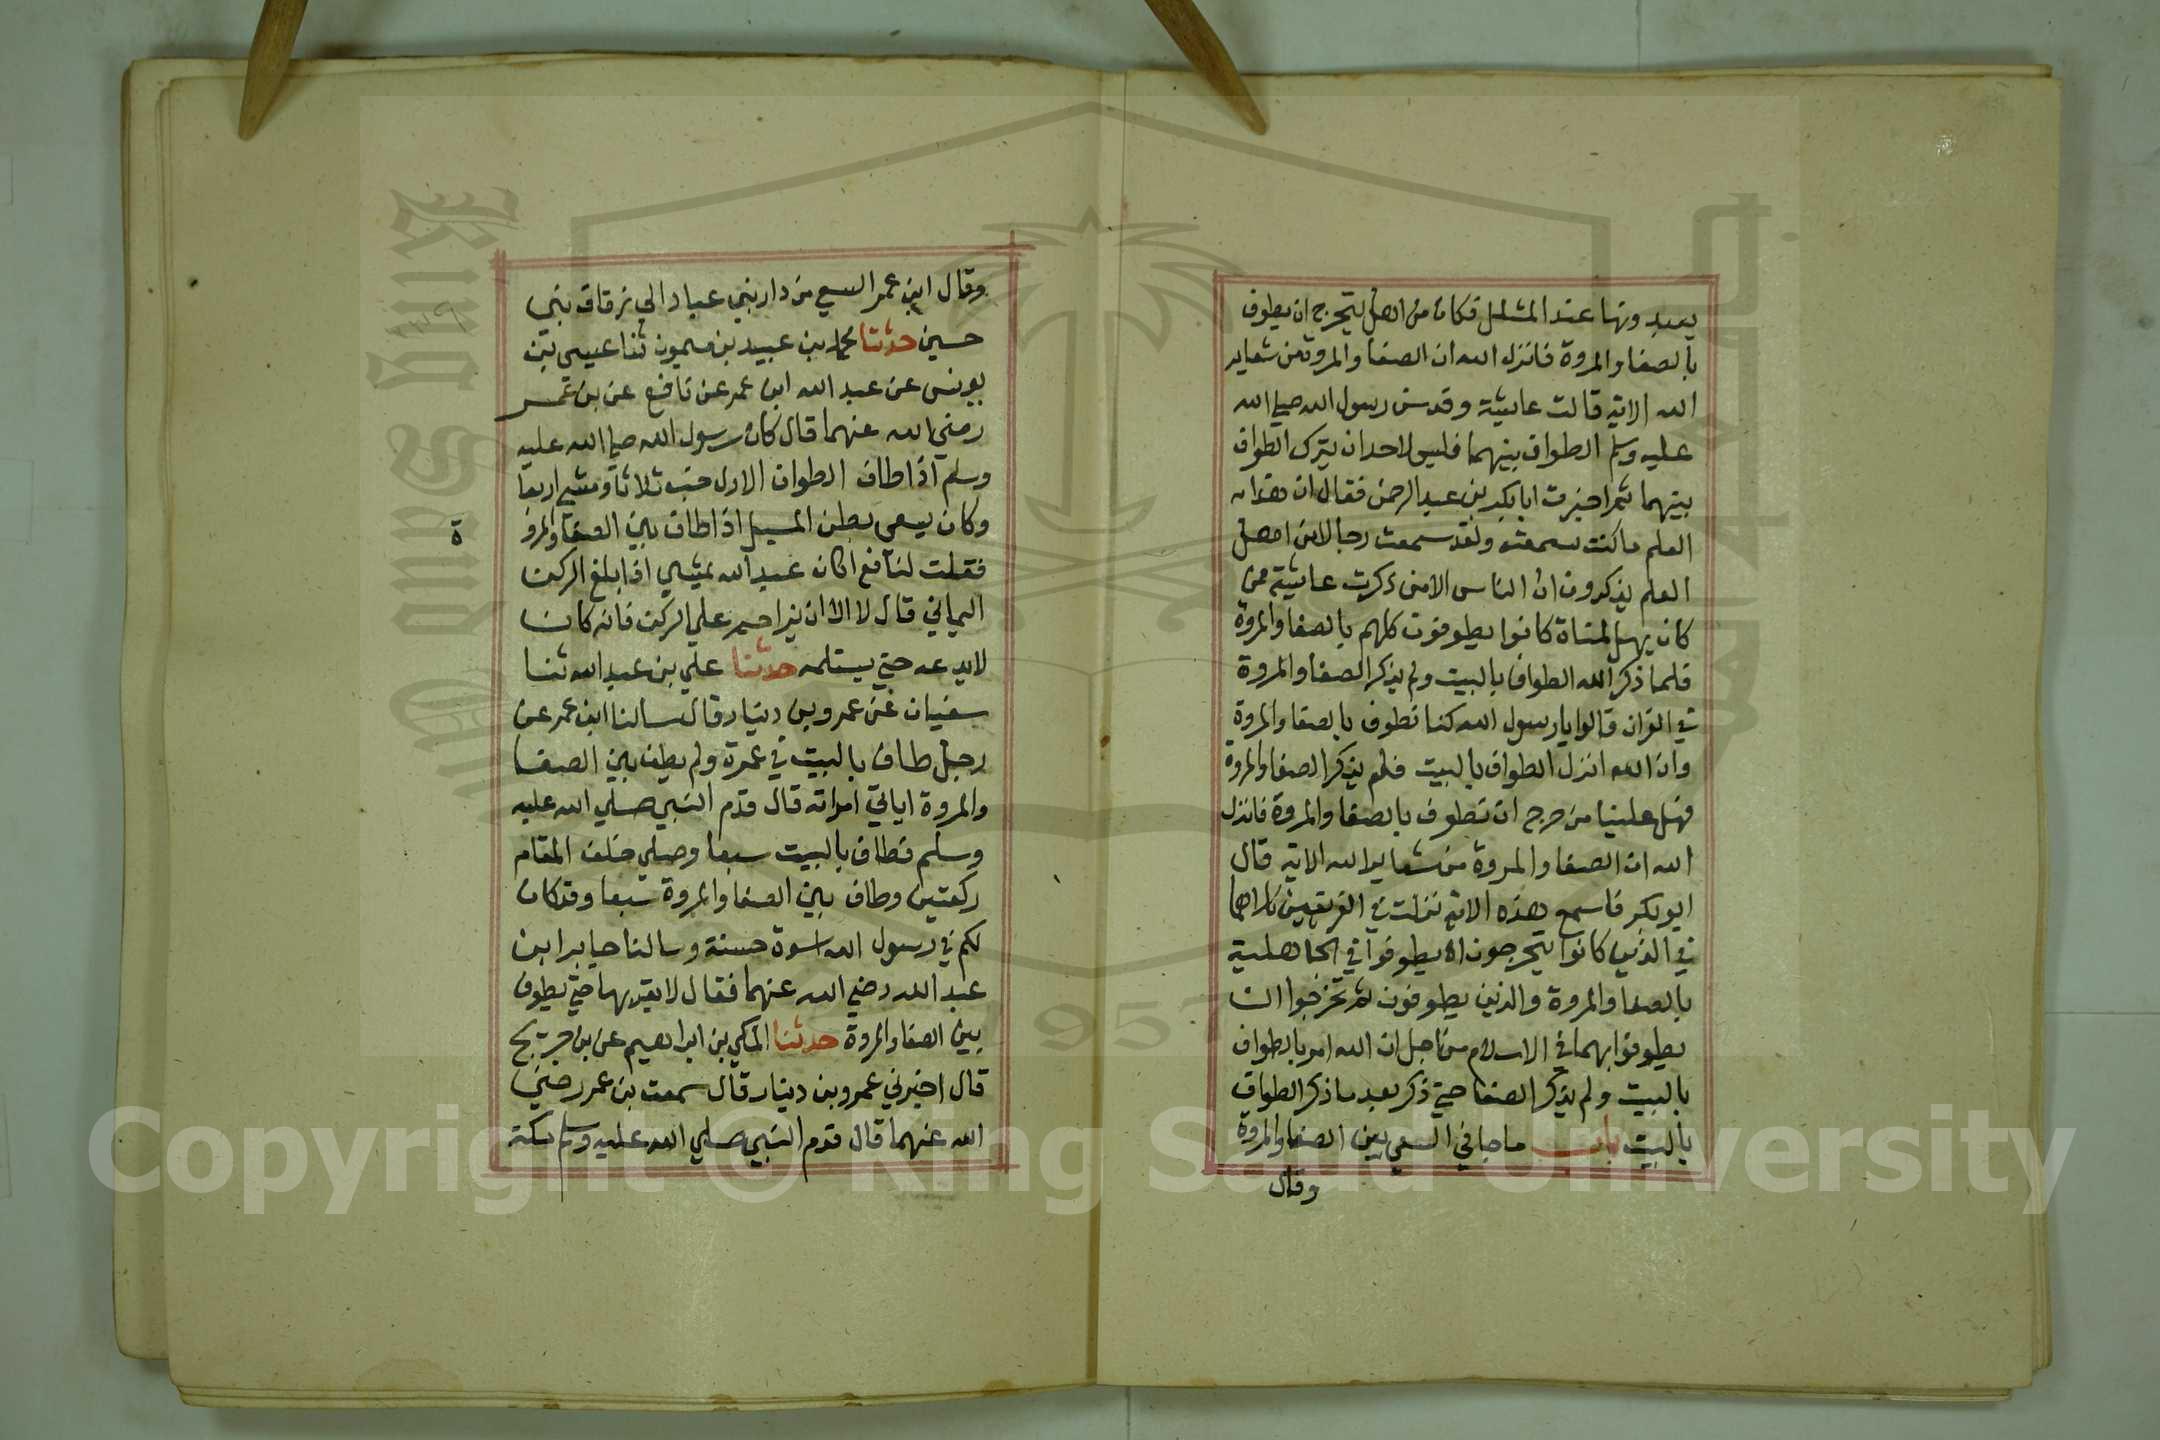 يعبدونها عند المشلل فكان من اهل يتحرج ان يطوف
بالصفا والمروة فانزل الله ان الصفا والمروة من شعاير
الله الاية قالت عايشة وقد سن رسول الله صلى الله
عليه وسلم الطواف بينهما فليس لاحد ان يترك الطواف
بينهما ثم اخبرت ابا بكر بن عبد الرحمن فقال ان هذا
العلم ما كنت سمعته ولقد سمعت رجالا من اهل
العلم يذكرون ان الناس الا من ذكرت عايشة ممن
كان يهل لمناة كانوا يطوفون كلهم بالصفا والمروة
فلما ذكر الله الطواف بالبيت ولم يذكر الصفا والمروة
في القران قالوا يا رسول الله كنا نطوف بالصفا والمروة
وان الله انزل الطواف بالبيت فلم يذكر الصفا والمروة
فهل علينا من حرج ان نطوف بالصفا والمروة فانزل
الله ان الصفا والمروة من شعاير الله الاية قال
ابو بكر فاسمع هذه الاية نزلت في الفريقين كلاهما
في الذين كانوا يتحرجون ان يطوفوا في الجاهلية
بالصفا والمروة والذين يطوفون ثم تحرجوا ان
يطوفوا بهما في الاسلام من اجل ان الله امر بالطواف
بالبيت ولم يذكر الصفا حتي ذكر بعد ما ذكر الطواف
بالبيت باب ما جا في السعي بين الصفا والمروة
وقال
وقال ابن عمر السعي من دار بني عباد الي زقاق بني
حسين حدثنا محمد بن عبيد بن ميمون ثنا عيسى بن
يونس عن عبد الله ابن عمر عن نافع عن بن عمر
رضي الله عنهما قال كان رسول الله صلى الله عليه
وسلم اذا طاف الطواف الاول خب ثلاثا ومشي اربعا
وكان يسعى بطن المسيل اذا طاف بين الصفا والمرو
ة
فقلت لنافع اكان عبد الله يمشي اذا بلغ الركن
اليماني قال لا الا ان يزاحم علي الركن فانه كان
لا يدعه حتي يستلمه حدثنا علي بن عبد الله ثنا
سفيان عن عمرو بن دينار قال سالنا ابن عمر عن
رجل طاف بالبيت في عمرة ولم يطف بين الصفا
والمروة اياتي امراته قال قدم النبي صلي الله عليه
وسلم فطاف بالبيت سبعا وصلي خلف المقام
ركعتين وطاف بين الصفا والمروة سبعا وقد كان
لكم في رسول الله اسوة حسنة وسالنا جابر ابن
عبد الله رضي الله عنهما فقال لا يقربها حتي يطوف
بين الصفا والمروة حدثنا المكي بن ابراهيم عن بن جريج
قال اخبرني عمرو بن دينار قال سمعت بن عمر رضي
الله عنهما قال قدم النبي صلي الله عليه وسلم مكة
King Saud University
1957
Copyright © King Saud University